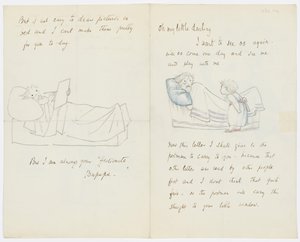 But is not easy to draw pictures in
bed and I can't make them pretty
for you to day.
But I am always your "fectionate"
Bapapa.
Oh my little darling
I want to see oo again.
come one day and see me
and play with me.
Now this letter I shall give to the
postman to carry to you - because that
other letters are read by other people
first and I don't think that quite
fair - so the postman will carry this
straight to your little window.